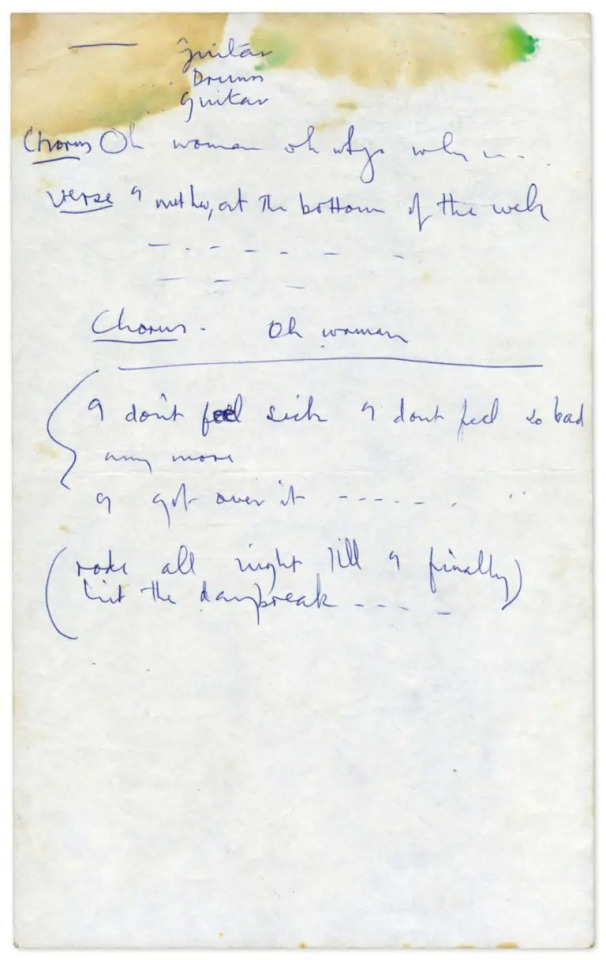 guitar
Drums
guitar
Chorus Oh woman oh why why
verse I met her, at the bottom of the well
- - - - - - -
- - -
Chorus. Oh woman
I don't feel sick I dont feel so bad
any more
I got over it - - - - -
(rode all night till I finally)
hit the daybreak - - - -